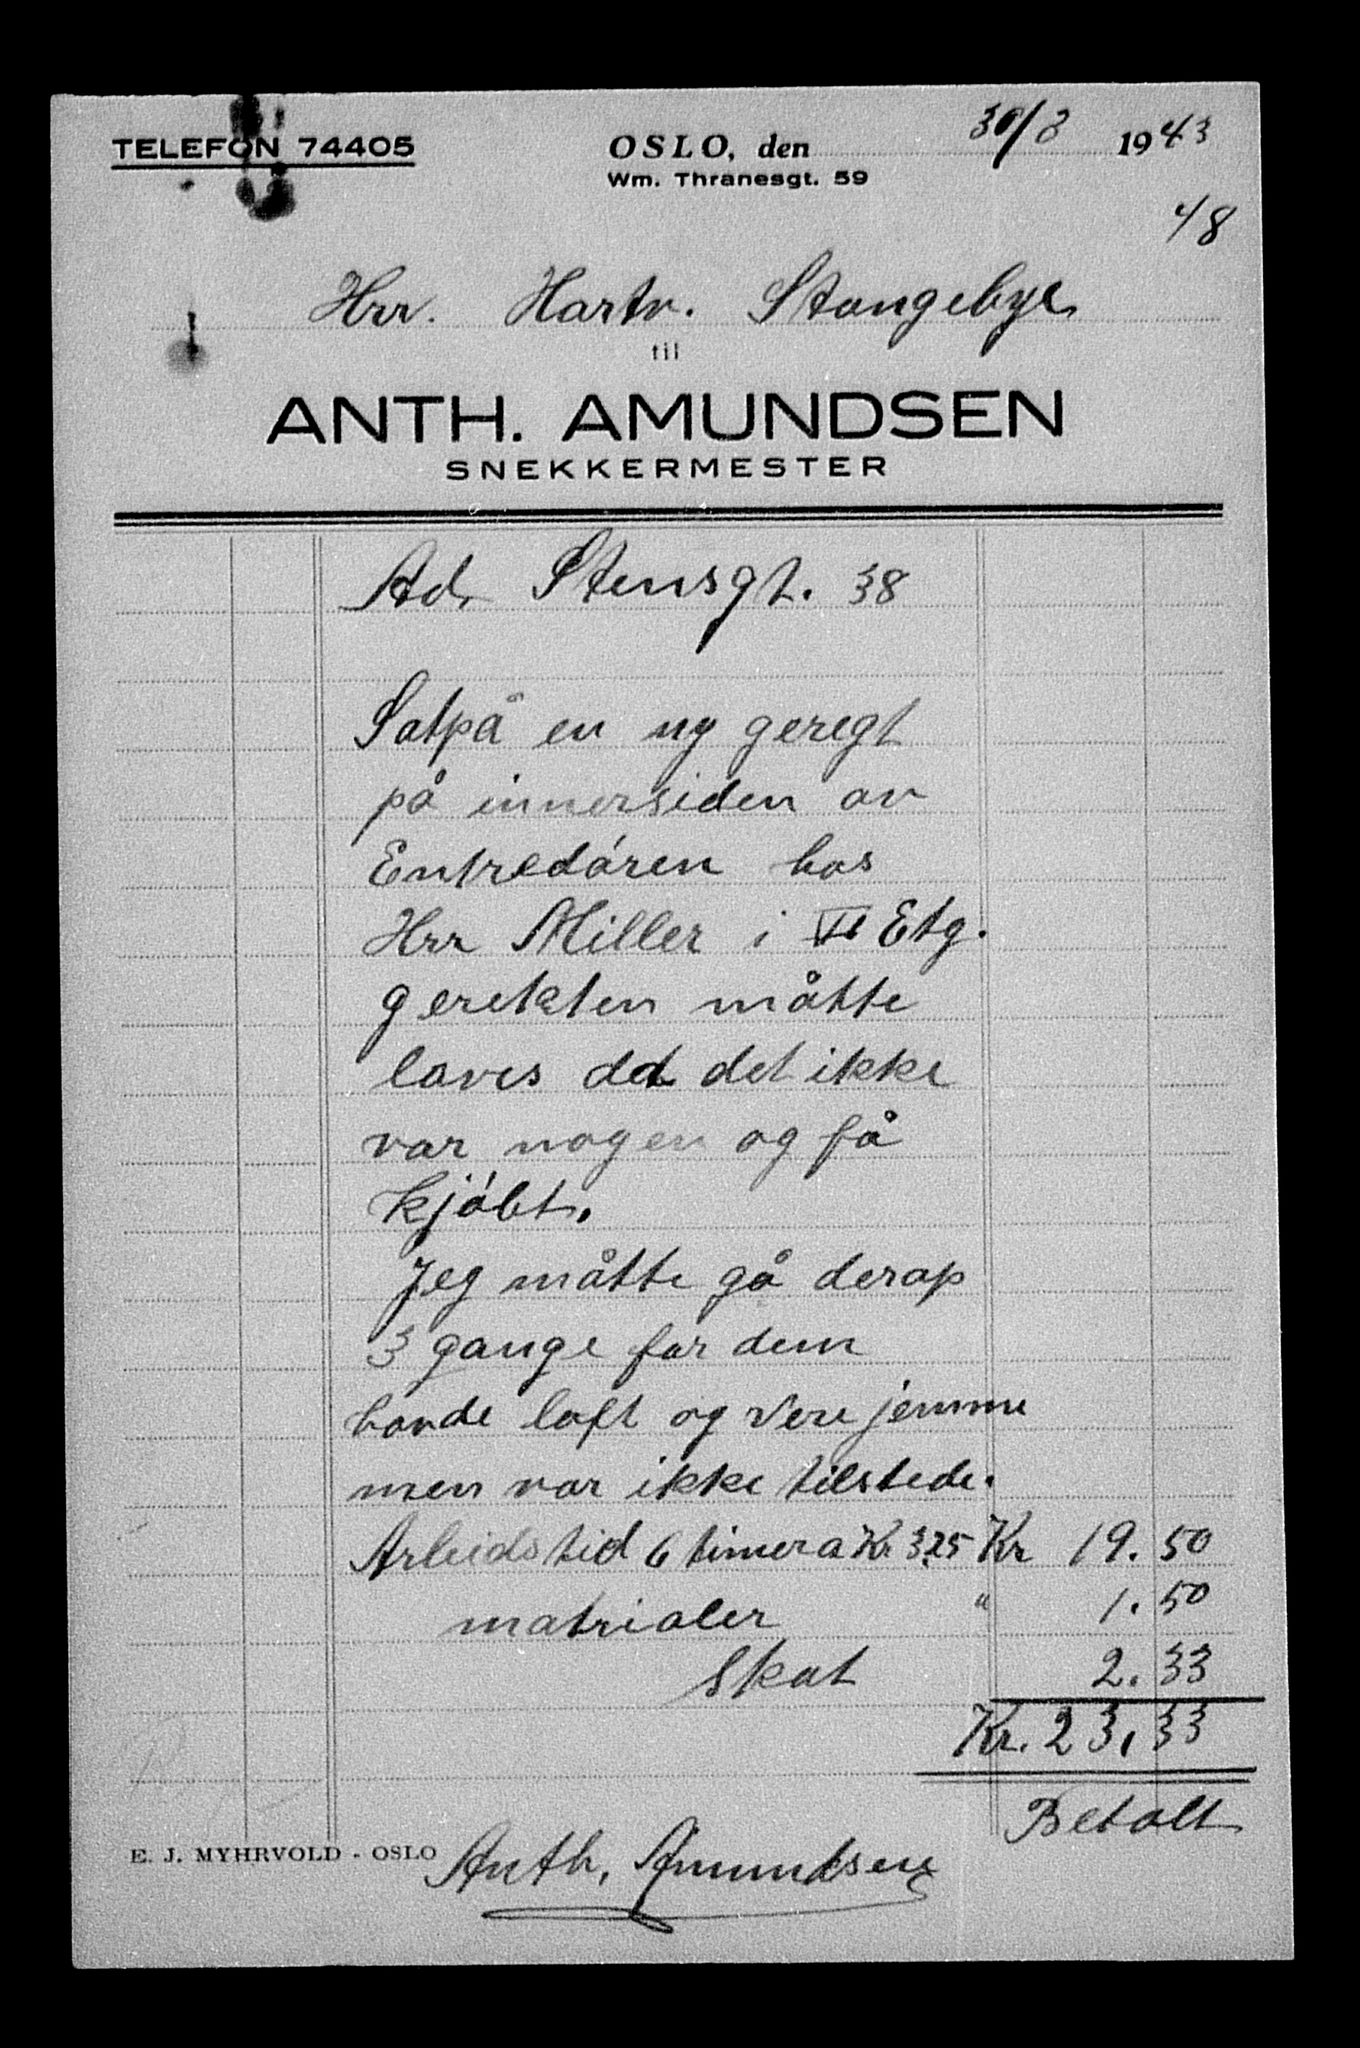 TELEFON 74405
OSLO, den 30/3 1943
Wm. Thranesgt. 59
48
Hrr. Hartv. Stangebye
til
ANTH. AMUNDSEN
SNEKKERMESTER
Ad. Stensgt. 38
Satpå en ny geregt
på innersiden av
Entredóren hos
Hrr Miller i VI Etg.
gerekten måtte
laves da det ikke
var nogen og få
kjóbt.
Jeg måtte gå derop
3 gange for dem
havde loft og vere jemme
men var ikke tilstede.
Arbeidstid 6 timer a Kr 3,25 Kr 19.50
matrialer " 1.50
Skat 2.33
Kr. 23,33
Betalt
E. J. MYHRVOLD - OSLO
Anth. Amundsen